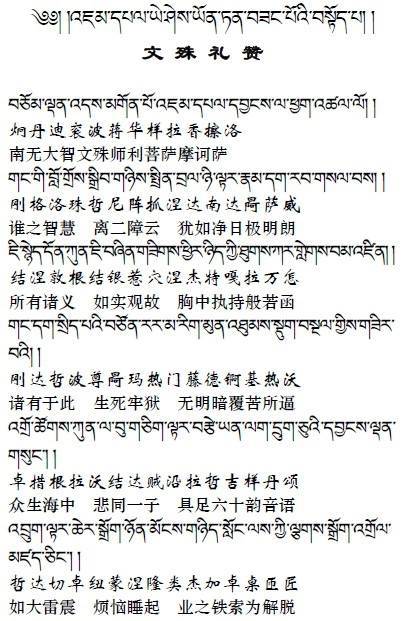 ༄༅། །འཇམ་དཔལ་ཡེ་ཤེས་ཡོན་ཏན་བཟང་པོའི་བསྟོད་པ། །
文殊礼赞
བཅོམ་ལྡན་འདས་མགོན་པོ་འཇམ་དཔལ་དབྱངས་ལ་ཕྱག་འཚལ་ལོ། །
炯丹迪衮波蒋华样拉香擦洛
南无大智文殊师利菩萨摩诃萨
གང་གི་བློ་གྲོས་སྒྲིབ་གཉིས་སྤྲིན་བྲལ་ཉི་ལྟར་རྣམ་དག་རབ་གསལ་བས། །
刚格洛珠哲尼阵抓涅达南达咼萨威
谁之智慧 离二障云 犹如净日极明朗
ཇི་སྙེད་དོན་ཀུན་ཇི་བཞིན་གཟིགས་ཕྱིར་ཉིད་ཀྱི་ཐུགས་ཀར་གླེགས་བམ་འཛིན། །
结涅敦根结银惹穴涅杰特嘎拉万怎
所有诸义 如实观故 胸中执持般若函
གང་དག་སྲིད་པའི་བཙོན་རར་མ་རིག་མུན་འཐུམས་སྡུག་བསྔལ་གྱིས་གཟིར་
བའི། །
刚达哲波尊咼玛热门藤德锕基热沃
诸有于此 生死牢狱 无明暗覆苦所逼
འགྲོ་ཚོགས་ཀུན་ལ་བུ་གཅིག་ལྟར་བརྩེ་ཡན་ལག་དྲུག་ཅུའི་དབྱངས་ལྡན་
གསུང༌། །
卓措根拉沃结达贼沿拉哲吉样丹颂
众生海中 悲同一子 具足六十韵音语
འབྲུག་ལྟར་ཆེར་སྒྲོག་ཉོན་མོངས་གཉིད་སློང་ལས་ཀྱི་ལྕགས་སྒྲོག་འགྲོལ་
མཛད་ཅིང༌། །
哲达切卓纽蒙涅隆类杰加卓桌匝匠
如大雷震 烦恼睡起 业之铁索为解脱